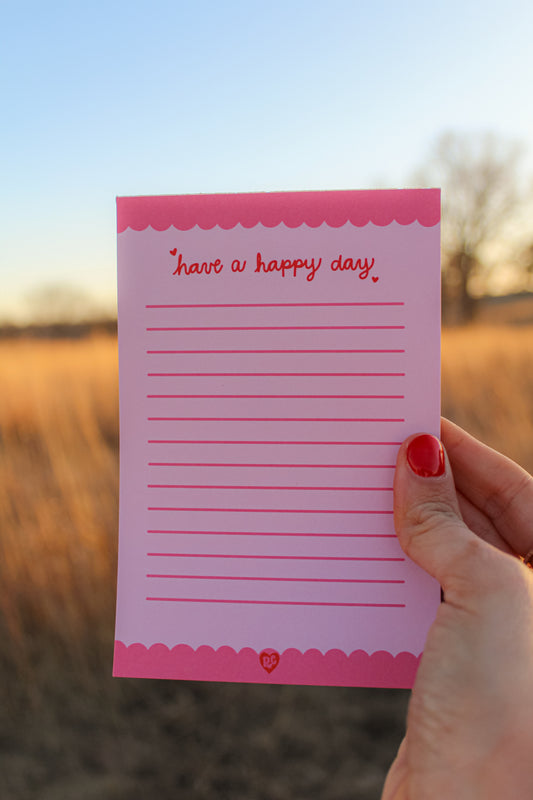 have a happy day